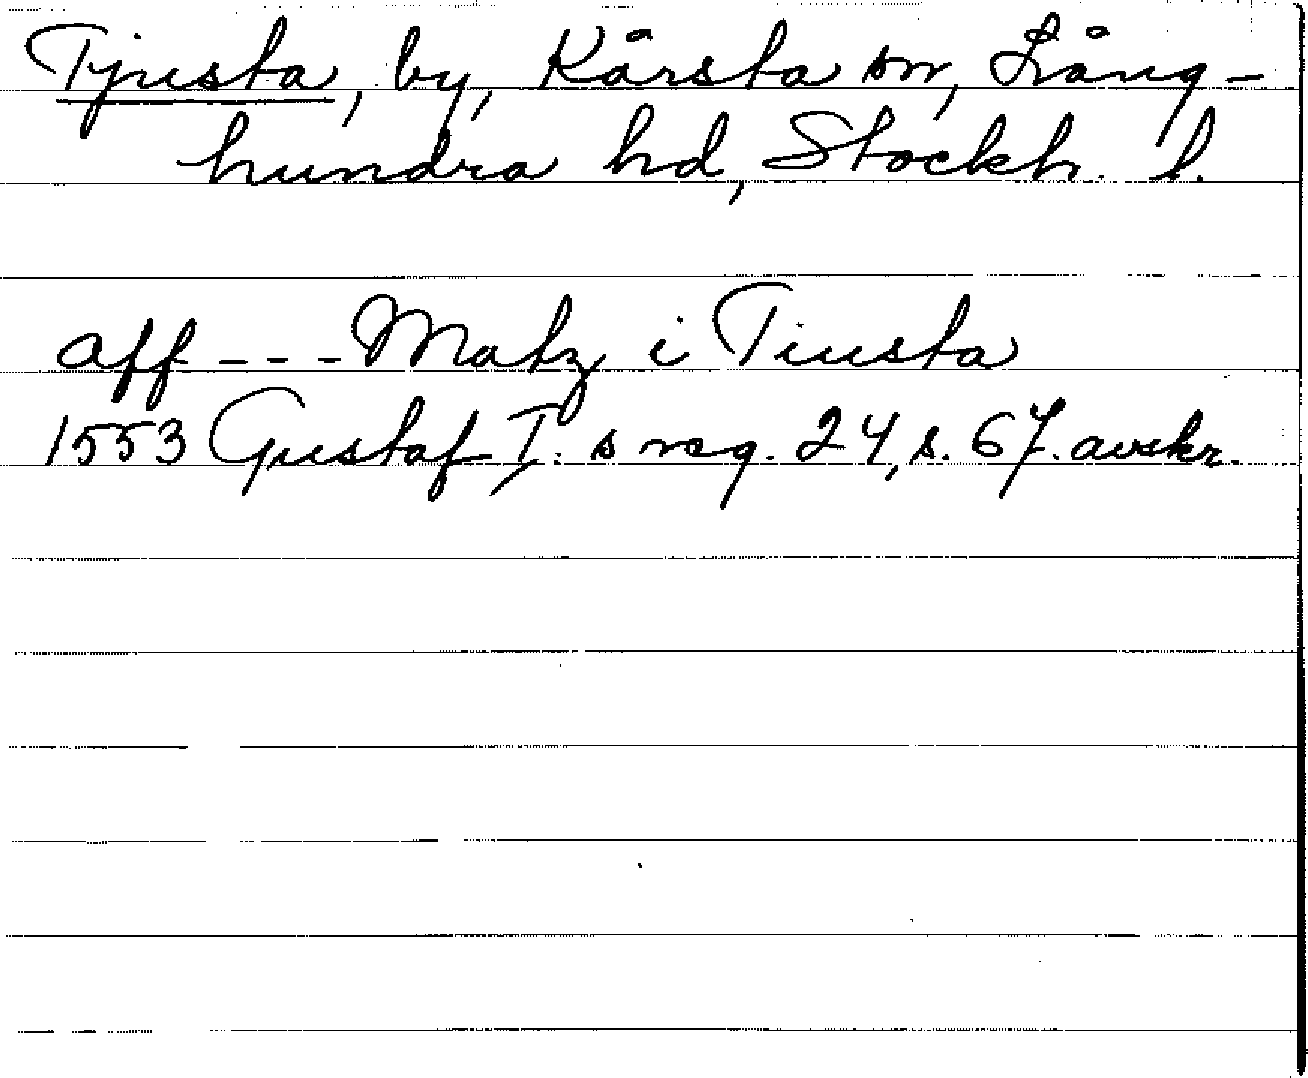 Tjusta, by, Kårsta sn, Lång-
hundra hd, Stockh. l.
aff - - - Matz i Tiusta
1553 Gustaf I. s reg. 24, s. 67. avskr.